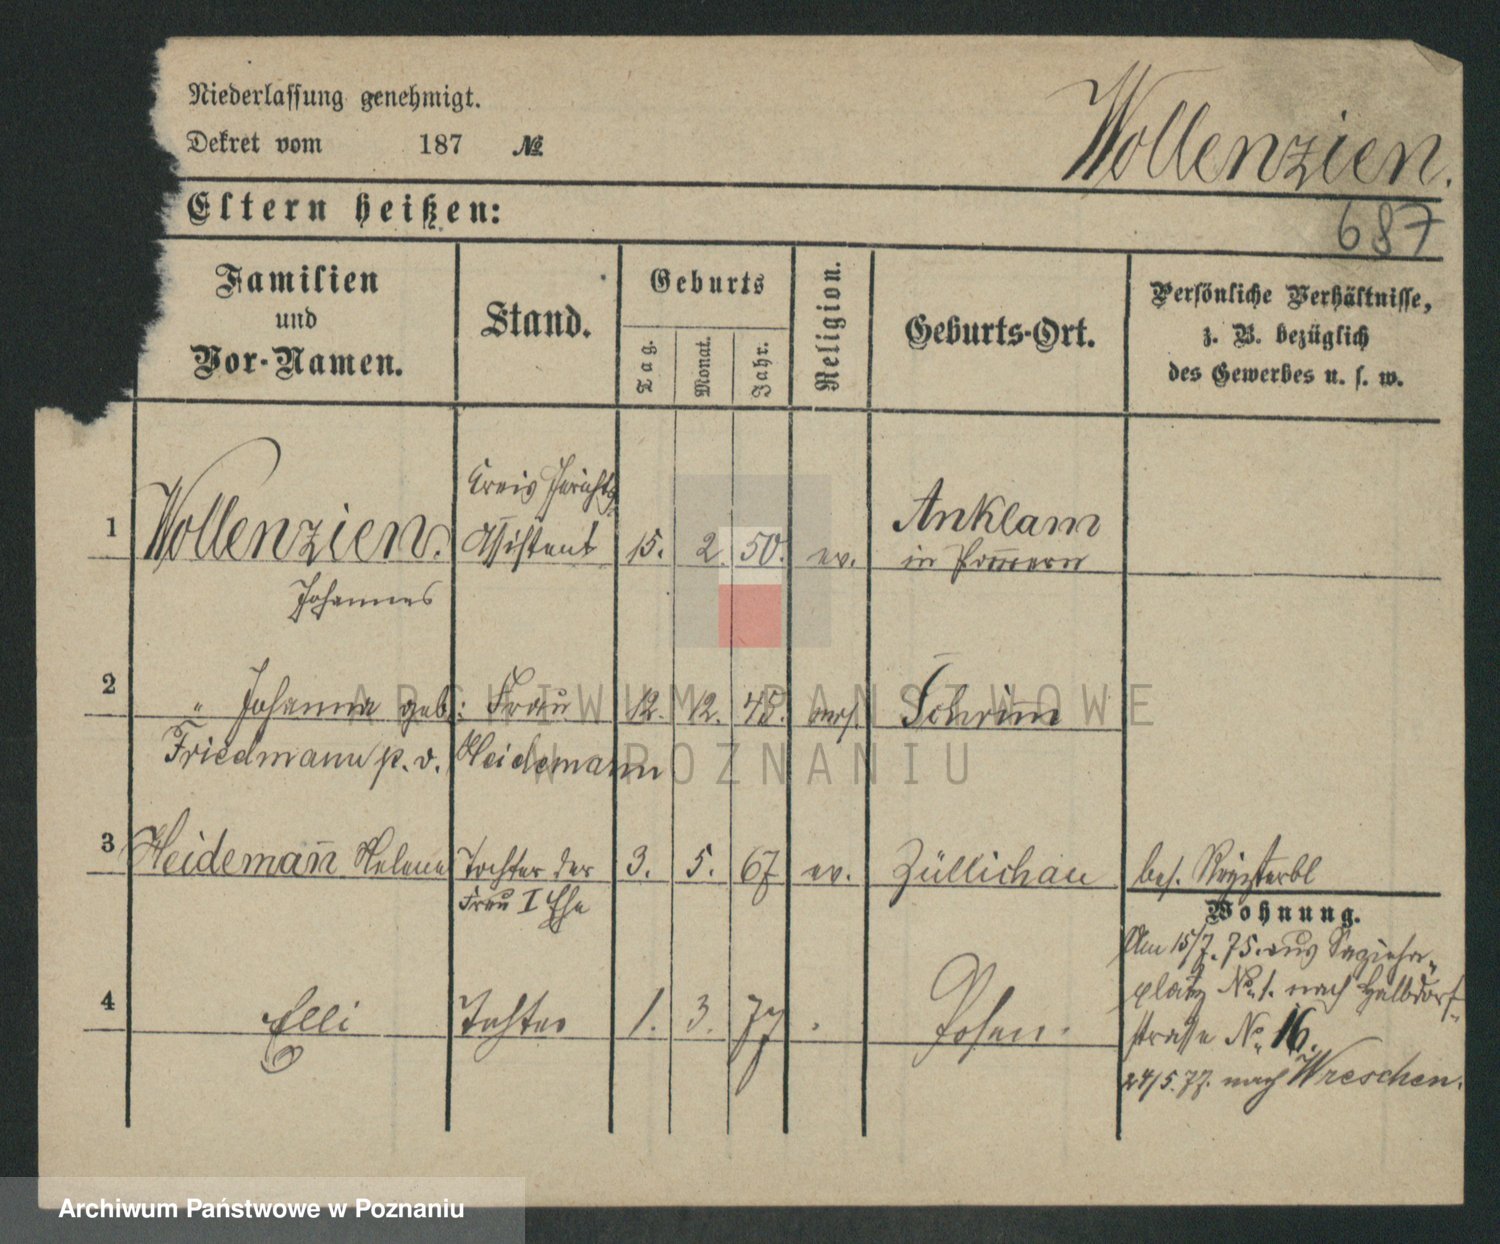 Niederlassung genehmigt.
Dekret vom 187 №
Wollenzien.
687
Eltern heißen:
Familien
und
Vor-Namen.
Stand.
Geburts
Tag.
Monat.
Jahr.
Religion.
Geburts-Ort.
Persönliche Verhältnisse,
z. B. bezüglich
des Gewerbes u. s. w.
Kreis Gerichts
1 Wollenzien. Assistent 15. 2. 50. ev. Anklam
in Pom̄ern
Johannes
2 " Johanna geb: Frau 12. 12. 45. Schrim̄
Friedmann p. v. Heidemann
3 Heideman̄ Helene Tochter der 3. 5. 67 ev. Züllichau bes.
Frau I Ehe
Wohnung.
Am 15/7. 75. aus Sapieha-
platz No. 1. nach Halbdorf-
4 Elli Tochter 1. 3. 77 . Posen.
strasse No. 16.
24/5. 77. nach Wreschen.
ARCHIWUM PAŃSTWOWE
W POZNANIU
Archiwum Państwowe w Poznaniu